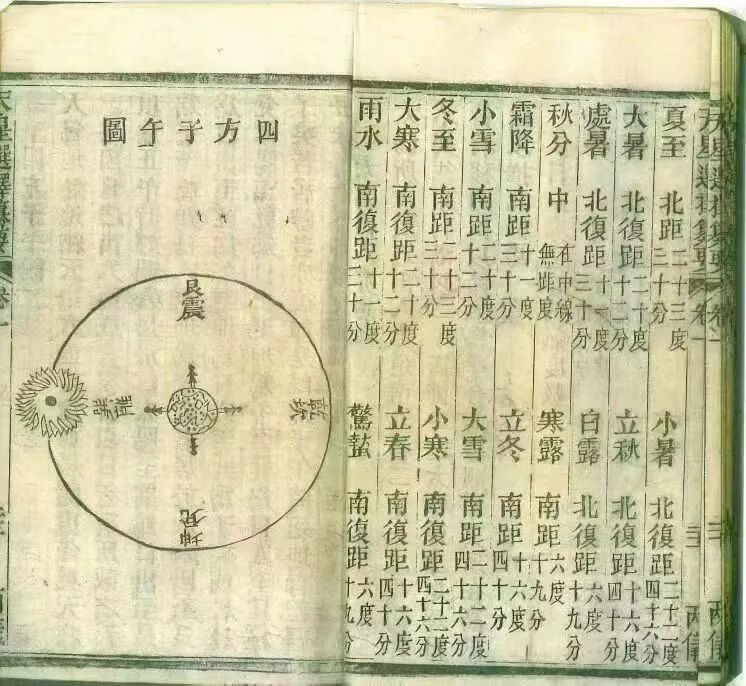 天星選擇纂要 卷一 兩儀
夏至 北距二十三度三十分 小暑 北復距二十二度四十六分
大暑 北復距二十度十二分 立秋 北復距十六度四十分
處暑 北復距十一度三十分 白露 北復距六度十九分
秋分 中 在中線無距度 寒露 南距六度十九分
霜降 南距十一度三十分 立冬 南距十六度四十分
小雪 南距二十度十二分 大雪 南距二十二度四十六分
冬至 南距二十三度三十分 小寒 南復距二十二度四十六分
大寒 南復距二十度十二分 立春 南復距十六度四十分
雨水 南復距十一度三十分 驚蟄 南復距六度十九分
四方子午圖
艮震
乾坎
坤兌
天星選擇纂要 卷一